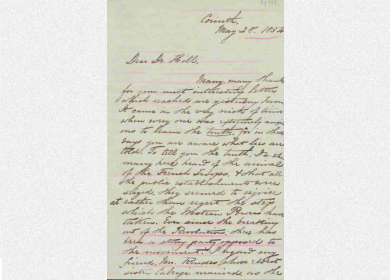 Corinth,
May 28. 1854
Dear Dr. Hill,
Many, many thanks
for your most interesting letter
which reached me yesterday
It came in the very nick of time
when every one was anxi-
ous to learn the truth, for in these
days you are aware what lies are
told. To tell you the truth,
many here heard of the arrival
of the French troops, & that all
the public establishments were
they seemed to rejoice
rather than regret the step
which the Western Powers have
taken. Ever since the breaking
out of the Revolution, there has
been a strong party opposed to
the movement.
friend, Mr.
as the